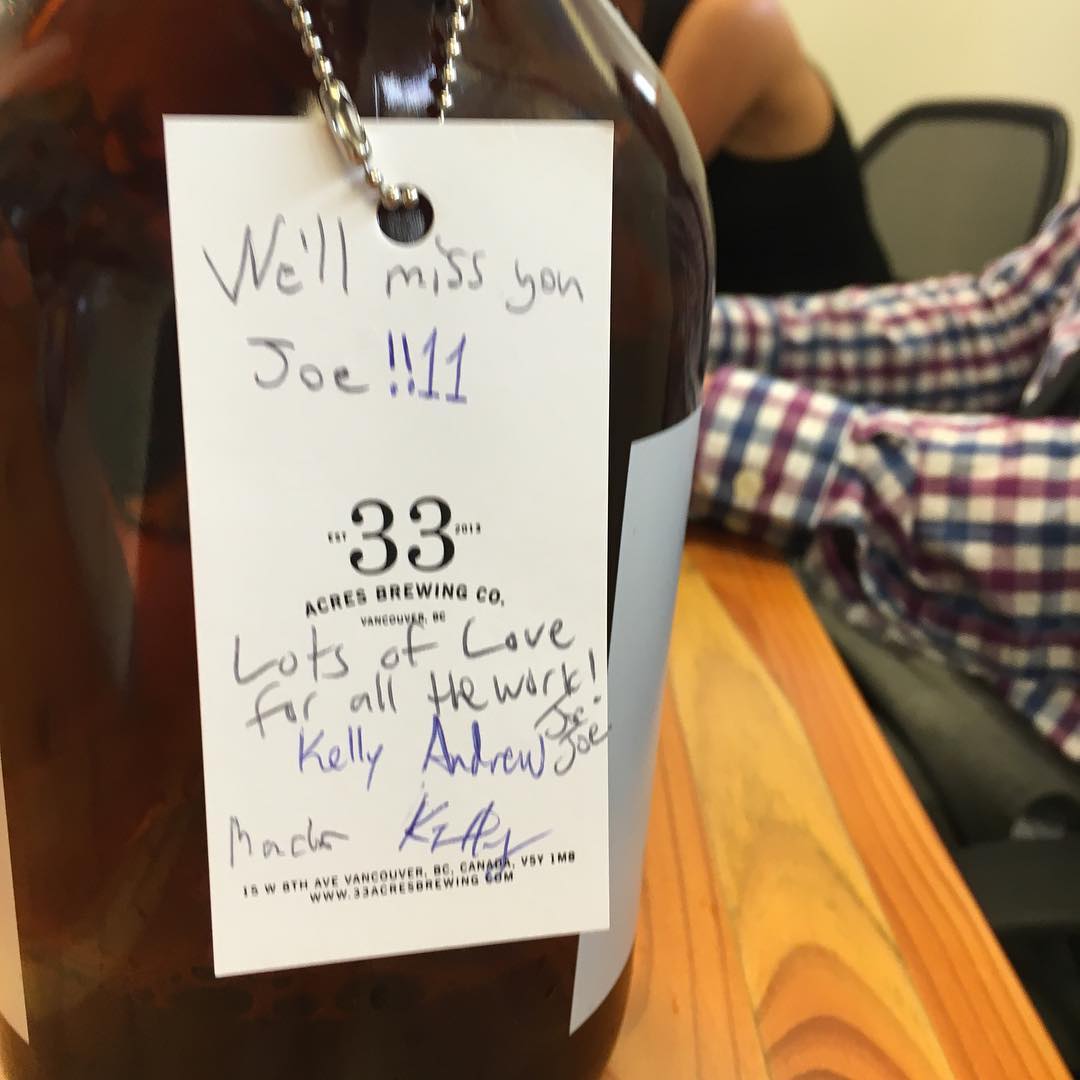 We'll miss you
Joe !!11
EST 33 2013
ACRES BREWING CO.
VANCOUVER, BC
Lots of Love
for all the work!
Kelly Andrew Joe
15 W 8TH AVE VANCOUVER, BC, CANADA, V5Y 1M8
WWW.33ACRESBREWING.COM